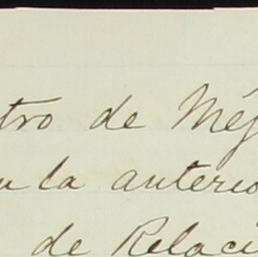 tro de Méj
n la anterio
de Relaci